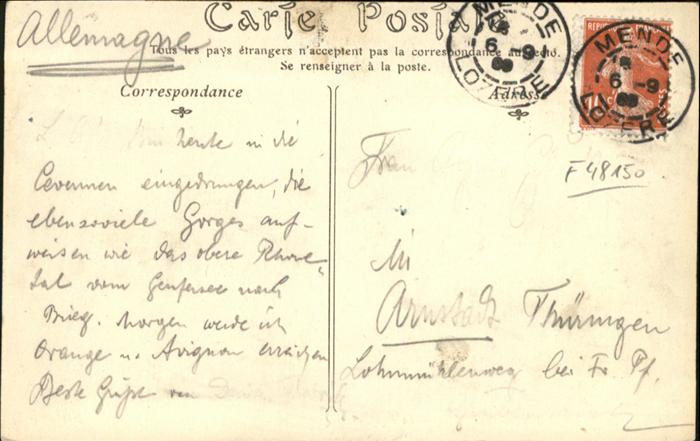 Carte Postale
Allemagne
Tous les pays étrangers n'acceptent pas la correspondance au recto.
Se renseigner à la poste.
Correspondance
Adresse
MENDE
6 -9
LOZÈRE
MENDE
6 -9
LOZÈRE
10
F48150
L. bin heute in die
Cevennen eingedrungen, die
ebensoviele Gorges auf-
weisen wie das obere Rhone-
tal vom Genfersee nach
Brieg. Morgen werde ich
Orange u. Avignon erreichen
Beste Grüße von
Frau
in
Arnstadt Thüringen
Lohmühlenweg bei Fr. Pf.